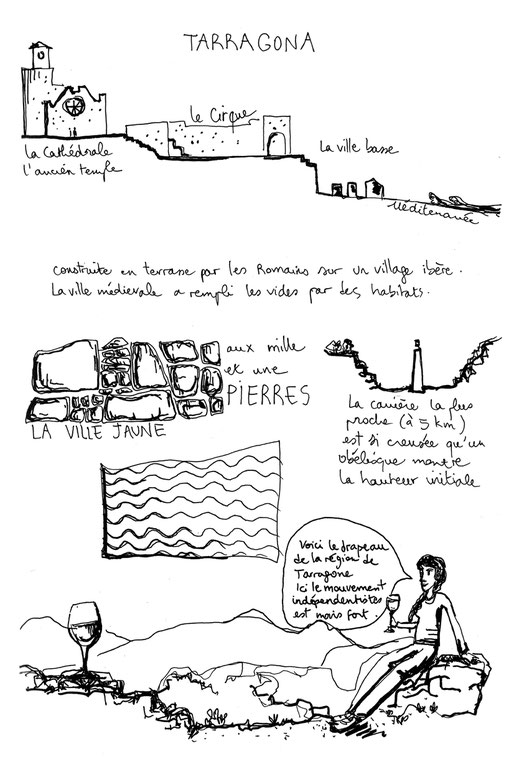 TARRAGONA
le Cirque
La Cathédrale
l'ancien temple
La ville basse
Méditerranée
Construite en terrasse par les Romains sur un village ibère.
La ville médievale a rempli les vides par des habitats.
aux mille
et une
PIERRES
LA VILLE JAUNE
La carrière la plus
proche (à 5 km)
est si creusée qu'un
obélisque montre
la hauteur initiale
Voici le drapeau
de la région de
Tarragone
Ici le mouvement
indépendentistes
est mois fort.